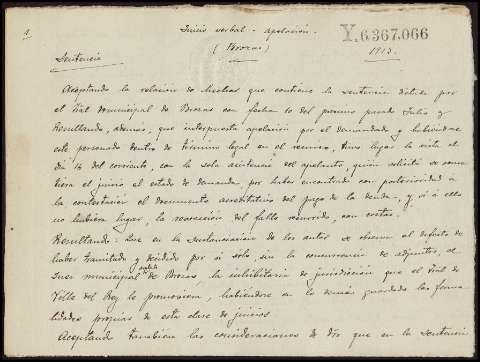 1
Juicio verbal - apelación.
(Brozas)
Y.6367.066
1913.
Sentencia
Aceptando la relación de hechos que contiene la sentencia dictada por
el Tral municipal de Brozas con fecha 10 del proximo pasado Julio y
Resultando, ademas, que interpuesta apelación por el demandado y habiendose
este personado dentro de término legal en el recurso, tuvo lugar la vista el
dia 14 del corriente, con la sola asistencia del apelante, quien solicitó se
tiera el juicio al estado de demanda, por haber encontrado con posterioridad a
la contestación el documento acreditativo del pago de la deuda, y si á ello
no hubiere lugar, la revocación del fallo recurrido, con costas.
Resultando: Que en la sustanciación de los autos se observa el defecto de
haber tramitado y decidido por si solo, sin la concurrencia de adjuntos, el
Juez municipal de Brozas, la inhibitoria de jurisdicción que el Tral de
Villa del Rey le promoviera, habiendose en lo demás guardado las forma-
lidades propias de esta clase de juicios
Aceptando tambien las consideraciones de dro que en la sentencia